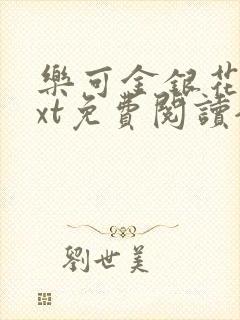 樂可金銀花
xt免費閱讀
劉世美